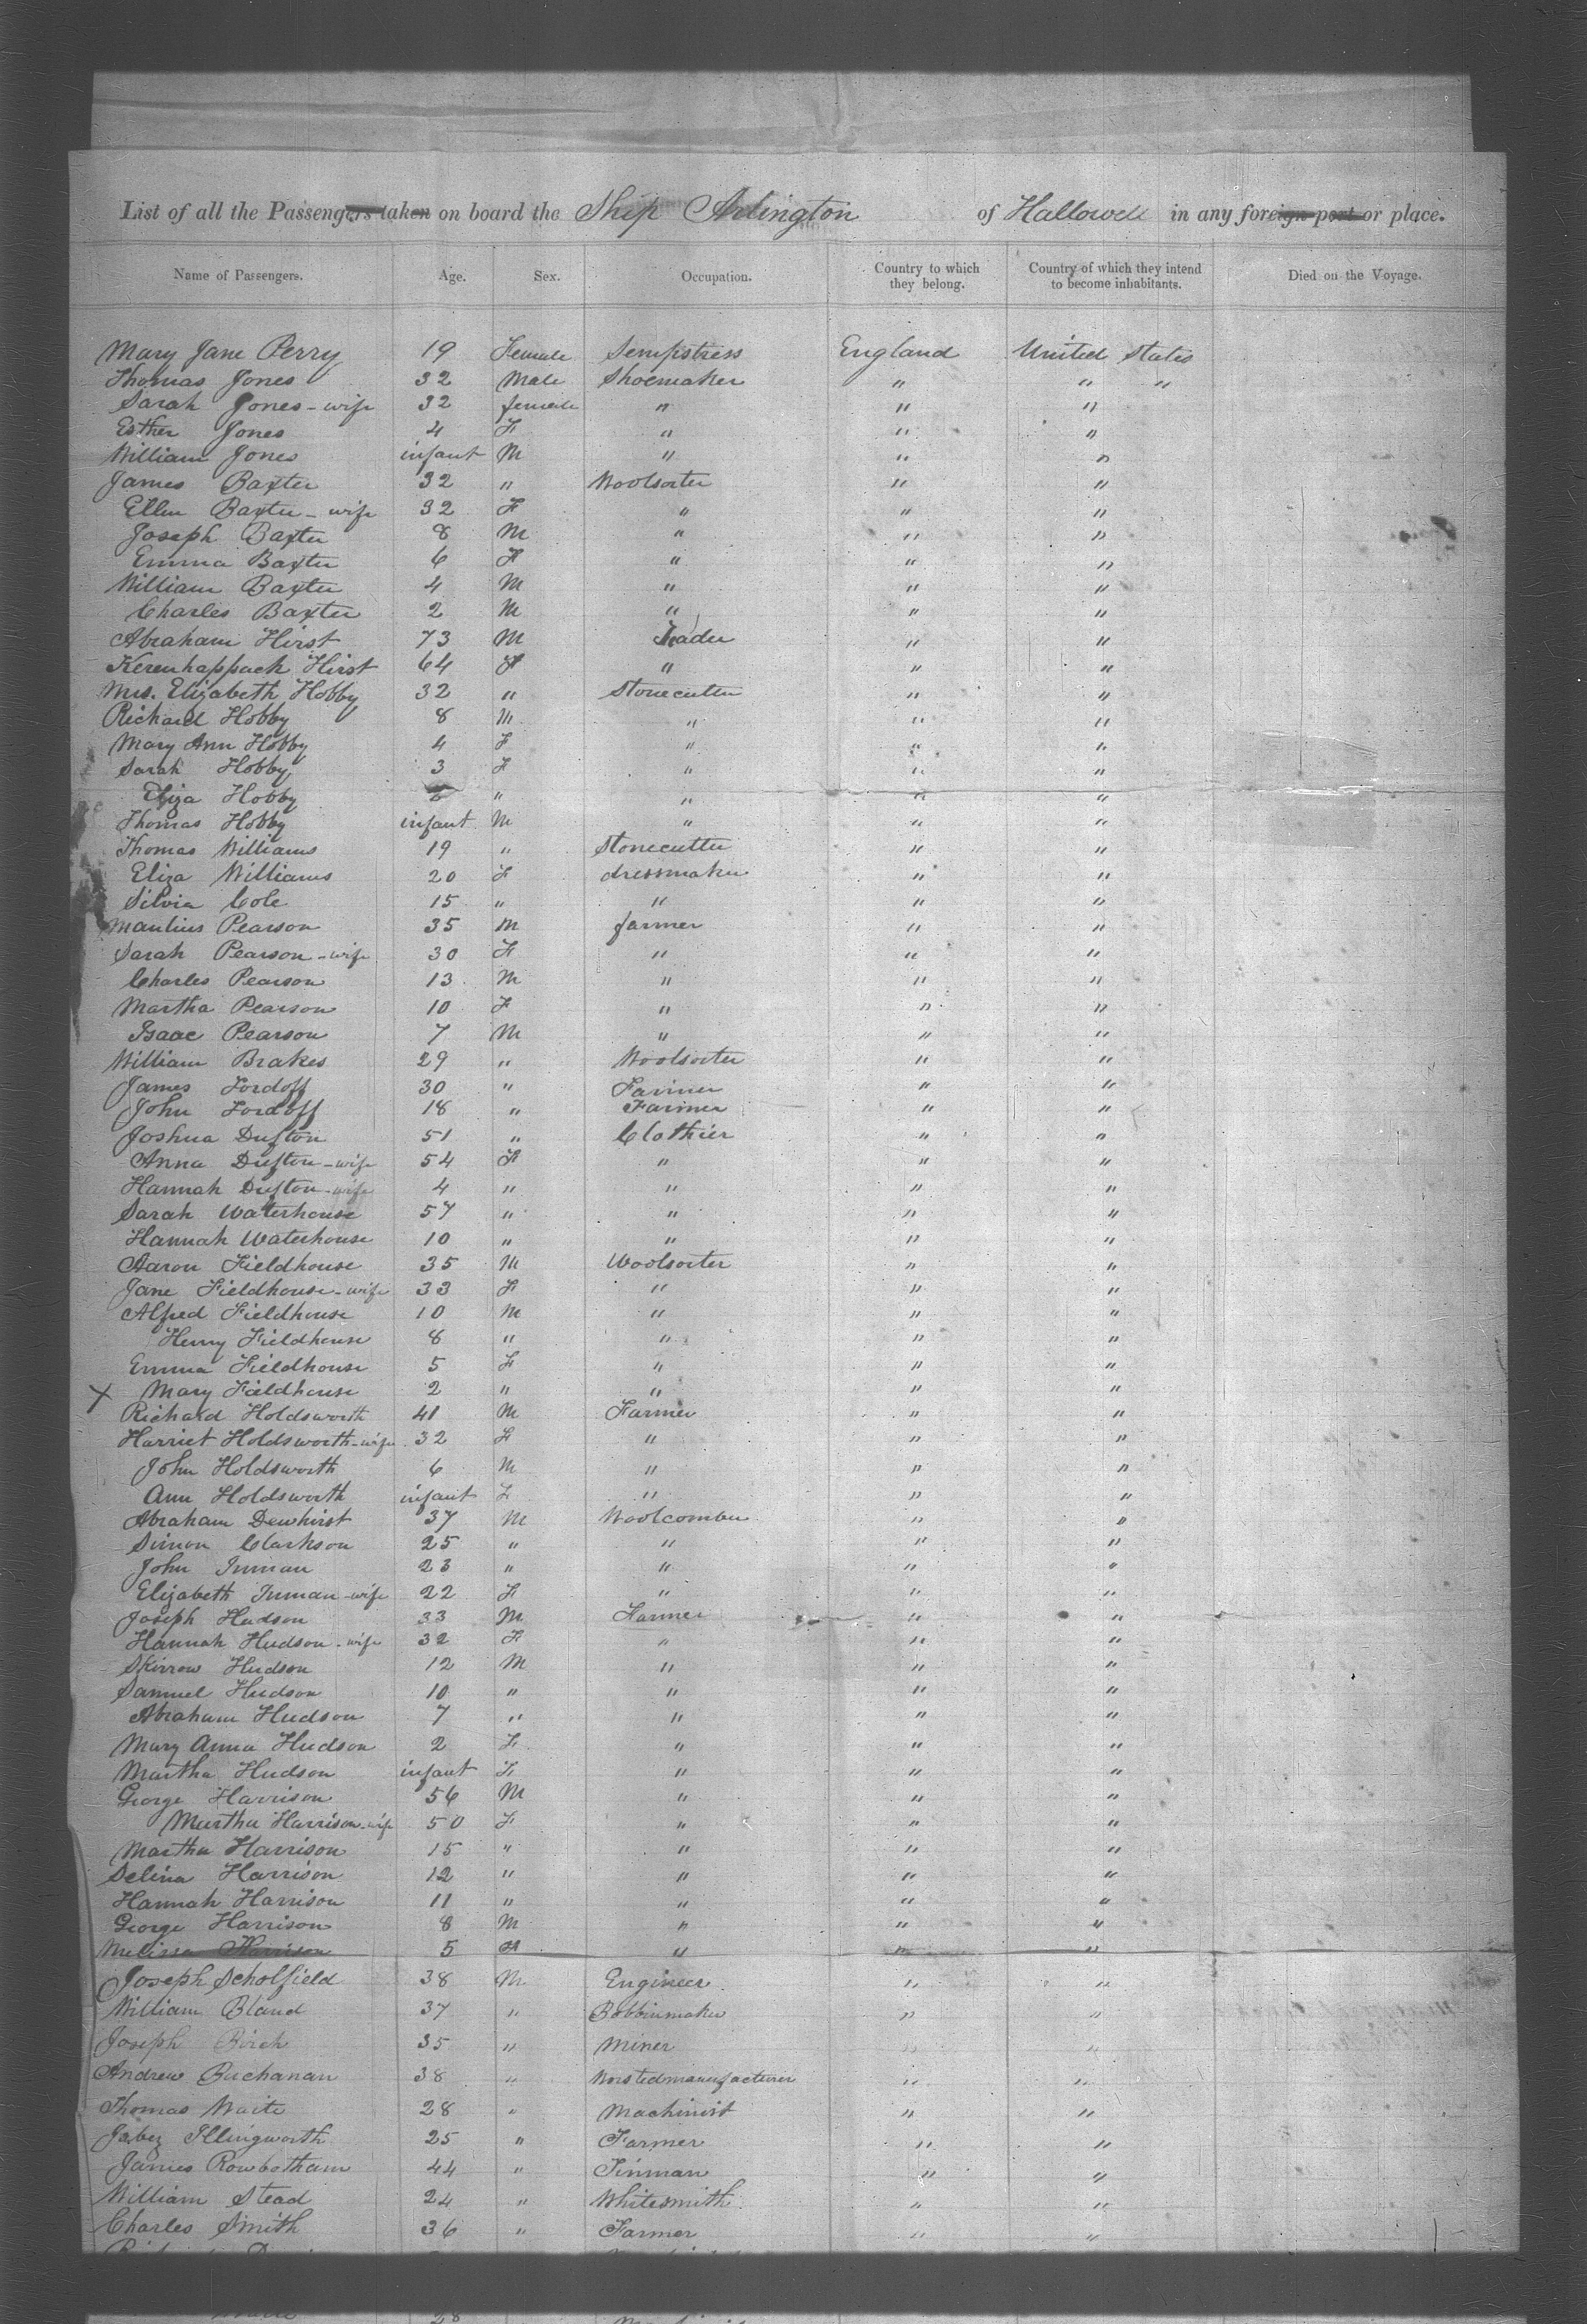 List of all the Passengers taken on board the Ship Arlington of Hallowell in any foreign port or place.
Name of Passengers. Age. Sex. Occupation. Country to which they belong. Country of which they intend to become inhabitants. Died on the Voyage.
Mary Jane Perry 19 Female Sempstress England United States
Thomas Jones 32 Male Shoemaker " " "
Sarah Jones - wife 32 female " " "
Esther Jones 4 F " " "
William Jones infant M " " "
James Baxter 32 " Woolsorter " "
Ellen Baxter - wife 32 F " " "
Joseph Baxter 8 M " " "
Emma Baxter 6 F " " "
William Baxter 4 M " " "
Charles Baxter 2 M " " "
Abraham Hirst 73 M Trader " "
Kerenhappuch Hirst 64 F " " "
Mrs. Elizabeth Hobby 32 " Stonecutter " "
Richard Hobby 8 M " " "
Mary Ann Hobby 4 F " " "
Sarah Hobby 3 F " " "
Eliza Hobby " " " "
Thomas Hobby infant M " " "
Thomas Williams 19 " Stonecutter " "
Eliza Williams 20 F dressmaker " "
Silvia Cole 15 " " " "
Manlius Pearson 35 M farmer " "
Sarah Pearson - wife 30 F " " "
Charles Pearson 13 M " " "
Martha Pearson 10 F " " "
Isaac Pearson 7 M " " "
William Brakes 29 " Woolsorter " "
James Fordoff 30 " Farmer " "
John Fordoff 18 " Farmer " "
Joshua Dufton 51 " Clothier " "
Anna Dufton - wife 54 F " " "
Hannah Dufton - wife 4 " " " "
Sarah Waterhouse 57 " " " "
Hannah Waterhouse 10 " " " "
Aaron Fieldhouse 35 M Woolsorter " "
Jane Fieldhouse - wife 33 F " " "
Alfred Fieldhouse 10 M " " "
Henry Fieldhouse 8 " " " "
Emma Fieldhouse 5 F " " "
X Mary Fieldhouse 2 " " " "
Richard Holdsworth 41 M Farmer " "
Harriet Holdsworth - wife 32 F " " "
John Holdsworth 6 M " " "
Ann Holdsworth infant F " " "
Abraham Dewhirst 37 M Woolcomber " "
Simon Clarkson 25 " " " "
John Inman 23 " " " "
Elizabeth Inman - wife 22 F " " "
Joseph Hudson 33 M Farmer " "
Hannah Hudson - wife 32 F " " "
Skirrow Hudson 12 M " " "
Samuel Hudson 10 " " " "
Abraham Hudson 7 " " " "
Mary Anna Hudson 2 F " " "
Martha Hudson infant F " " "
George Harrison 56 M " " "
Martha Harrison - wife 50 F " " "
Martha Harrison 15 " " " "
Selina Harrison 12 " " " "
Hannah Harrison 11 " " " "
George Harrison 8 M " " "
Melissa Harrison 5 F " " "
Joseph Scholfield 38 M Engineer " "
William Bland 37 " Bobbinmaker " "
Joseph Birch 35 " Miner " "
Andrew Buchanan 38 " Worstedmanufacturer " "
Thomas Waite 28 " Machinist " "
Jabez Illingworth 25 " Farmer " "
James Rowbotham 44 " Tinman " "
William Stead 24 " Whitesmith " "
Charles Smith 36 " Farmer " "